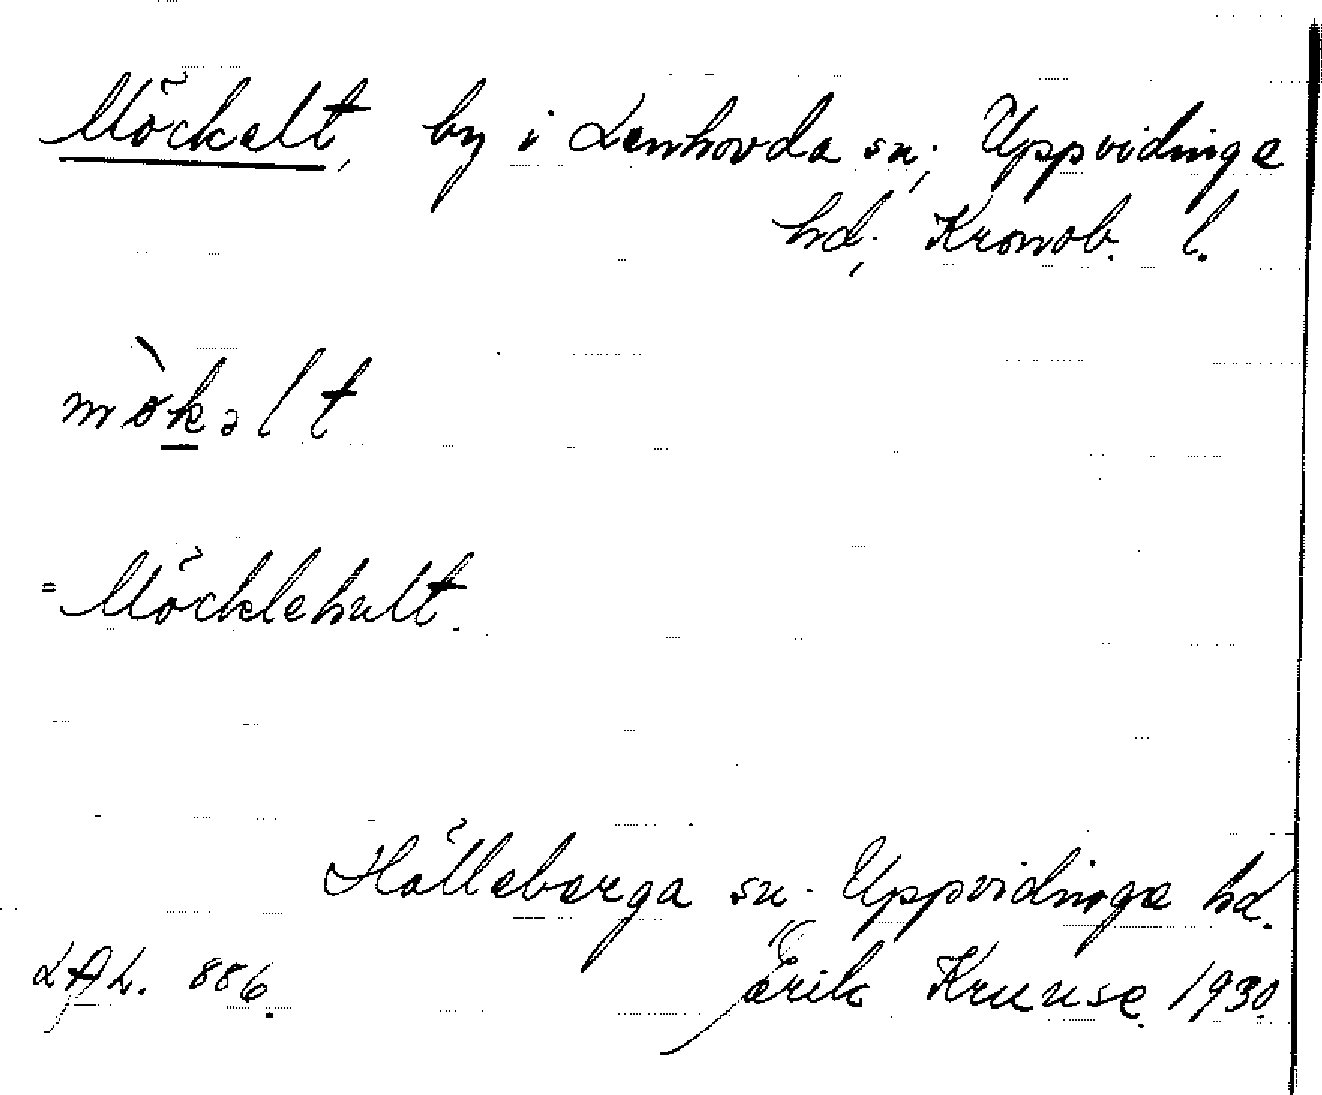 Möckelt, by i Lenhovda sn; Uppvidinge
hd; Kronob. l.
mòkəlt
= Möcklehult.
Hälleberga sn. Uppvidinge hd.
LAL. 886. Erik Kruuse. 1930.